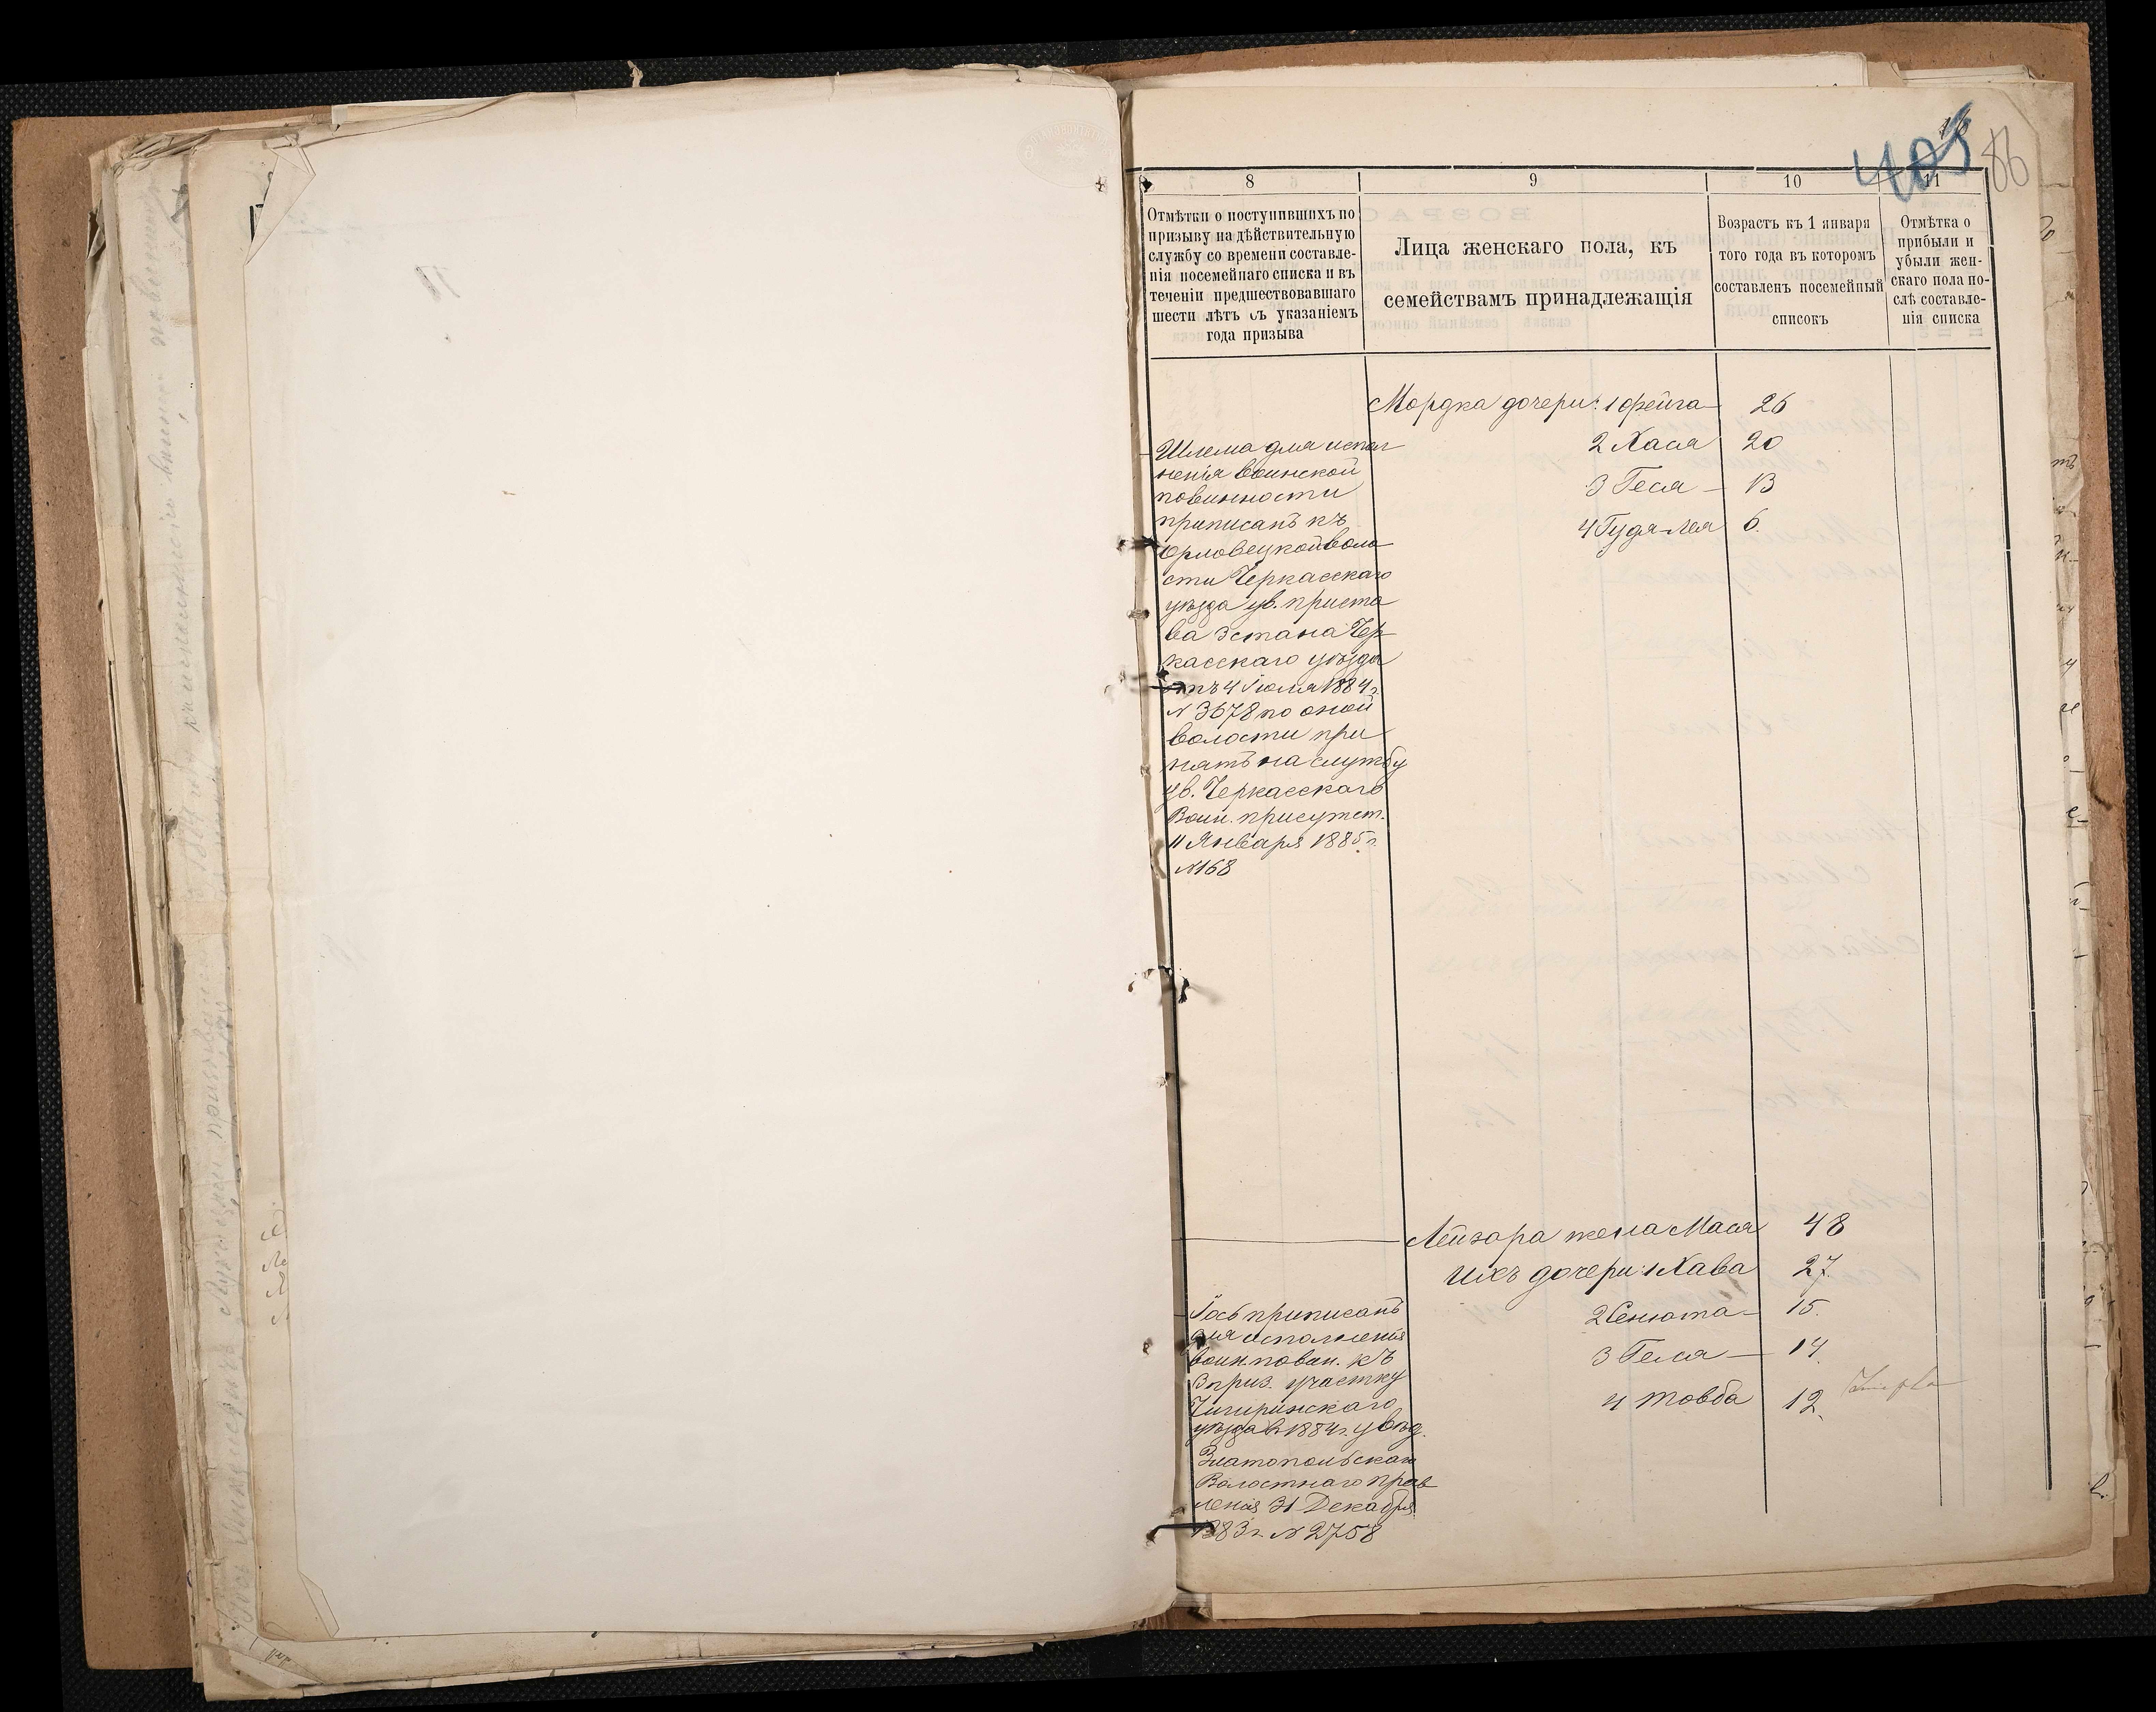 405
86
8
9
10
11
Отмѣтки о поступившихъ по
призыву на дѣйствительную
службу со времени составле-
нія посемейнаго списка и въ
теченіи предшествовавшаго
шести лѣтъ съ указаніемъ
года призыва
Лица женскаго пола, къ
семействамъ принадлежащія
Возрастъ къ 1 января
того года въ которомъ
составленъ посемейный
списокъ
Отмѣтка о
прибыли и
убыли жен-
скаго пола по-
слѣ составле-
нія списка
Мордка дочери: 1 Фейга 26
2 Хася 20
3 Геся 13
4 Гудя-Лея 6.
Шлема для испол
ненія воинской
повинности
приписанъ къ
Орловецкой воло
сти Черкасскаго
уѣзда ув. приста
ва 3 стана Чер
касскаго уѣзда
отъ 4 Іюля 1884 г.
N 3678 по оной
волости при
нятъ на службу
ув. Черкасскаго
Воин. присутст.
11 Января 1885 г.
N 168
Лейзора жена Мася 48
ихъ дочери: 1 Хава 27.
2 Сенюта 15.
3 Геся 14.
4 Товба 12.
Іось приписанъ
для исполненія
воин. повин. къ
3 приз. участку
Чигиринскаго
уѣзда въ 1884 г. увѣд.
Златопольскаго
Волостнаго прав
ленія 31 Декабря
1883 г. N 2758